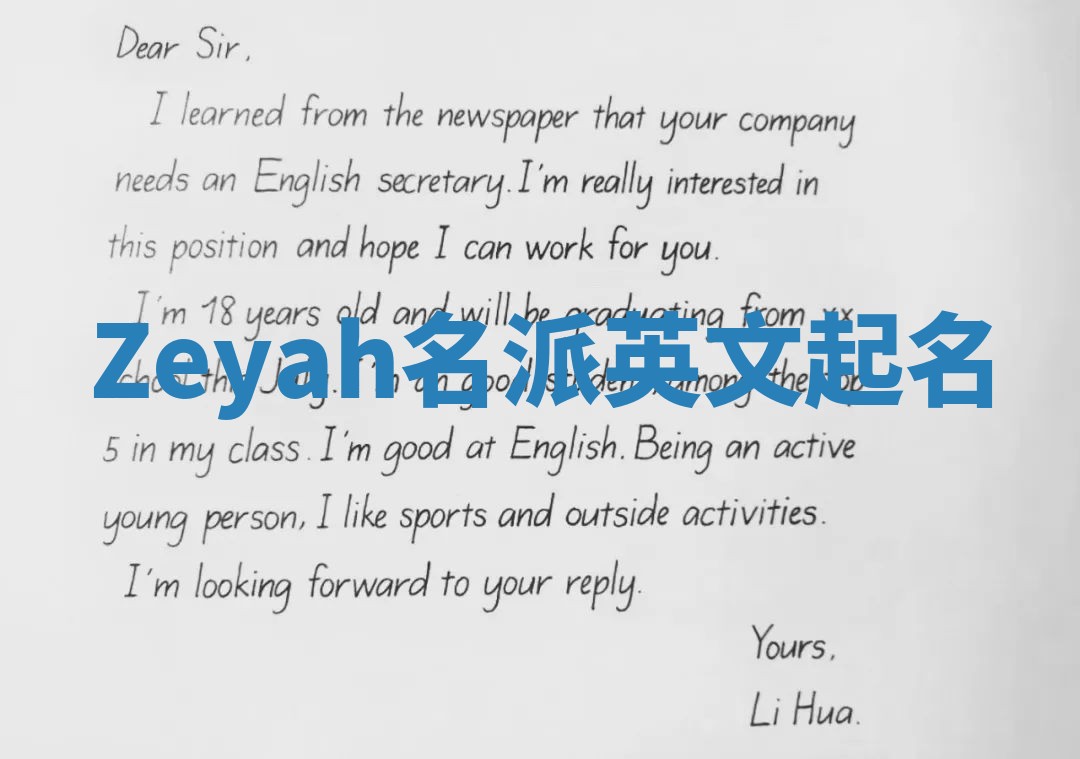 Dear Sir,
I learned from the newspaper that your company
needs an English secretary. I'm really interested in
this position and hope I can work for you.
I'm 18 years old and will be graduating from xx
Zeyah名派英文起名
school this July. I'm an good student, among the top
5 in my class. I'm good at English. Being an active
young person, I like sports and outside activities.
I'm looking forward to your reply.
Yours,
Li Hua.